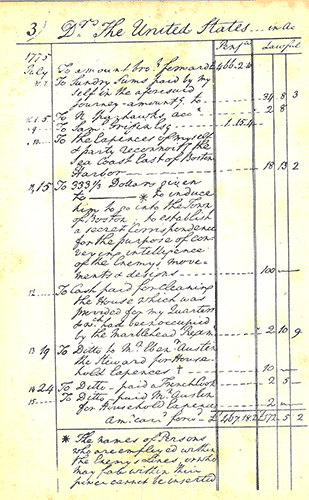 3) Drs The United States ... in Ac
Pensa Lawful
1775
July To amount bro.t forward £466.2.10
To Sundry Sums paid by my
self in the aforesaid
journey amountg to 34 8 3
5 To N. Acc.t 2 8
9 To Sam. Griffin Esq 1.15.4
To the Expences of myself
& party reconnoitg the
Sea Coast East of Boston
Harbor 18 13 2
15 To 333⅓ Dollars given
to ——— * to induce
him to go into the Town
of Boston to establish
a secret correspondence
for the purpose of con-
veying intelligence
of the Enemys move-
ments & designs 100 —
To Cash paid for cleaning
the House which was
provided for my Quarters
& wch had been occupied
by the Marblehead Regim 2 10 9
13 19 To Ditto to Mr Eben.r Austin
the Steward for House-
hold Expences † 10 —
14 24 To Ditto - paid a French Cook 2 5 —
15 To Ditto - paid Mr Austin
for Household Expence 2 —
Am.t carr.d forw.d £467.18.2 £172 5 2
* The names of Persons
who are employed within
the Enemys lines, or who
may fall within their
power cannot be inserted